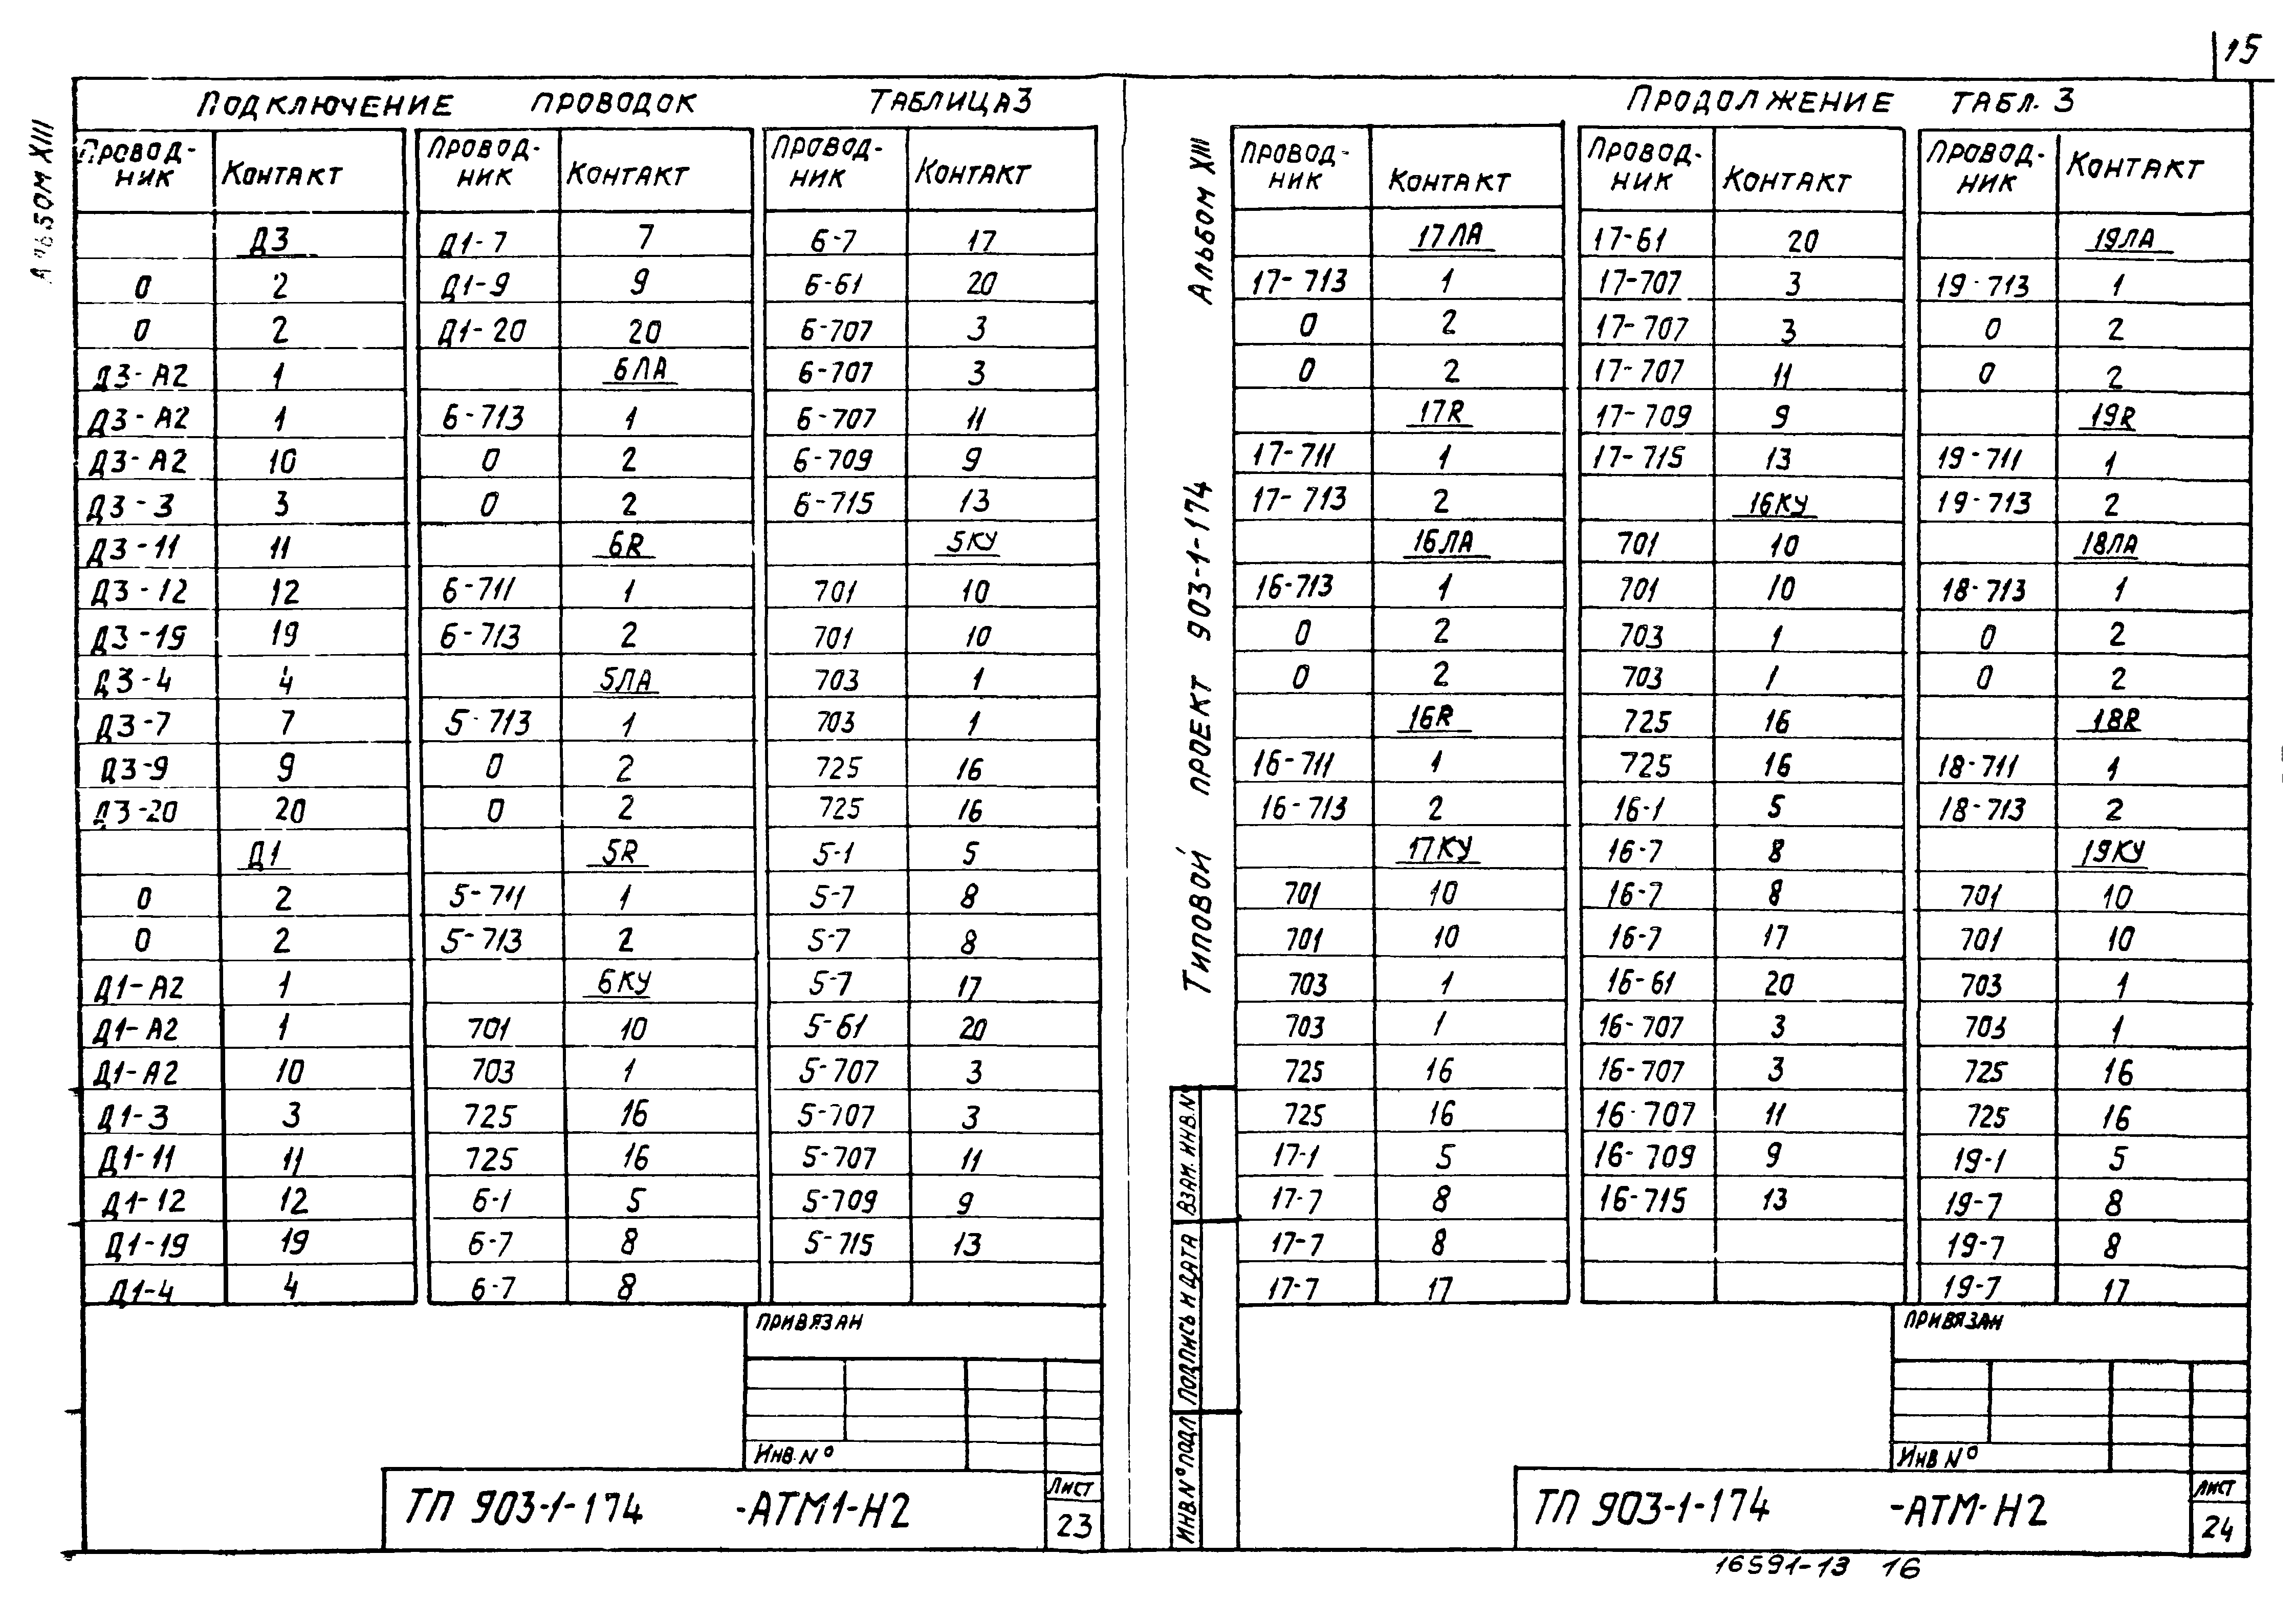 15
Альбом XIII
Подключение проводок Таблица 3
Провод-
ник Контакт
Д3
0 2
0 2
Д3-А2 1
Д3-А2 1
Д3-А2 10
Д3-3 3
Д3-11 11
Д3-12 12
Д3-19 19
Д3-4 4
Д3-7 7
Д3-9 9
Д3-20 20
Д1
0 2
0 2
Д1-А2 1
Д1-А2 1
Д1-А2 10
Д1-3 3
Д1-11 11
Д1-12 12
Д1-19 19
Д1-4 4
Провод-
ник Контакт
Д1-7 7
Д1-9 9
Д1-20 20
6ЛА
6-713 1
0 2
0 2
6R
6-711 1
6-713 2
5ЛА
5-713 1
0 2
0 2
5R
5-711 1
5-713 2
6КУ
701 10
703 1
725 16
725 16
6-1 5
6-7 8
6-7 8
Провод-
ник Контакт
6-7 17
6-61 20
6-707 3
6-707 3
6-707 11
6-709 9
6-715 13
5КУ
701 10
701 10
703 1
703 1
725 16
725 16
5-1 5
5-7 8
5-7 8
5-7 17
5-61 20
5-707 3
5-707 3
5-707 11
5-709 9
5-715 13
Привязан
Инв.N°
ТП 903-1-174 -АТМ1-Н2
Лист
23
Типовой проект 903-1-174 Альбом XIII
Продолжение табл. 3
Провод-
ник Контакт
17ЛА
17-713 1
0 2
0 2
17R
17-711 1
17-713 2
16ЛА
16-713 1
0 2
0 2
16R
16-711 1
16-713 2
17КУ
701 10
701 10
703 1
703 1
725 16
725 16
17-1 5
17-7 8
17-7 8
17-7 17
Провод-
ник Контакт
17-61 20
17-707 3
17-707 3
17-707 11
17-709 9
17-715 13
16КУ
701 10
701 10
703 1
703 1
725 16
725 16
16-1 5
16-7 8
16-7 8
16-7 17
16-61 20
16-707 3
16-707 3
16-707 11
16-709 9
16-715 13
Провод-
ник Контакт
19ЛА
19-713 1
0 2
0 2
19R
19-711 1
19-713 2
18ЛА
18-713 1
0 2
0 2
18R
18-711 1
18-713 2
19КУ
701 10
701 10
703 1
703 1
725 16
725 16
19-1 5
19-7 8
19-7 8
19-7 17
Инв.N°подл Подпись и дата Взам.инв.N°
Привязан
Инв N°
ТП 903-1-174 -АТМ-Н2
Лист
24
16591-13 16